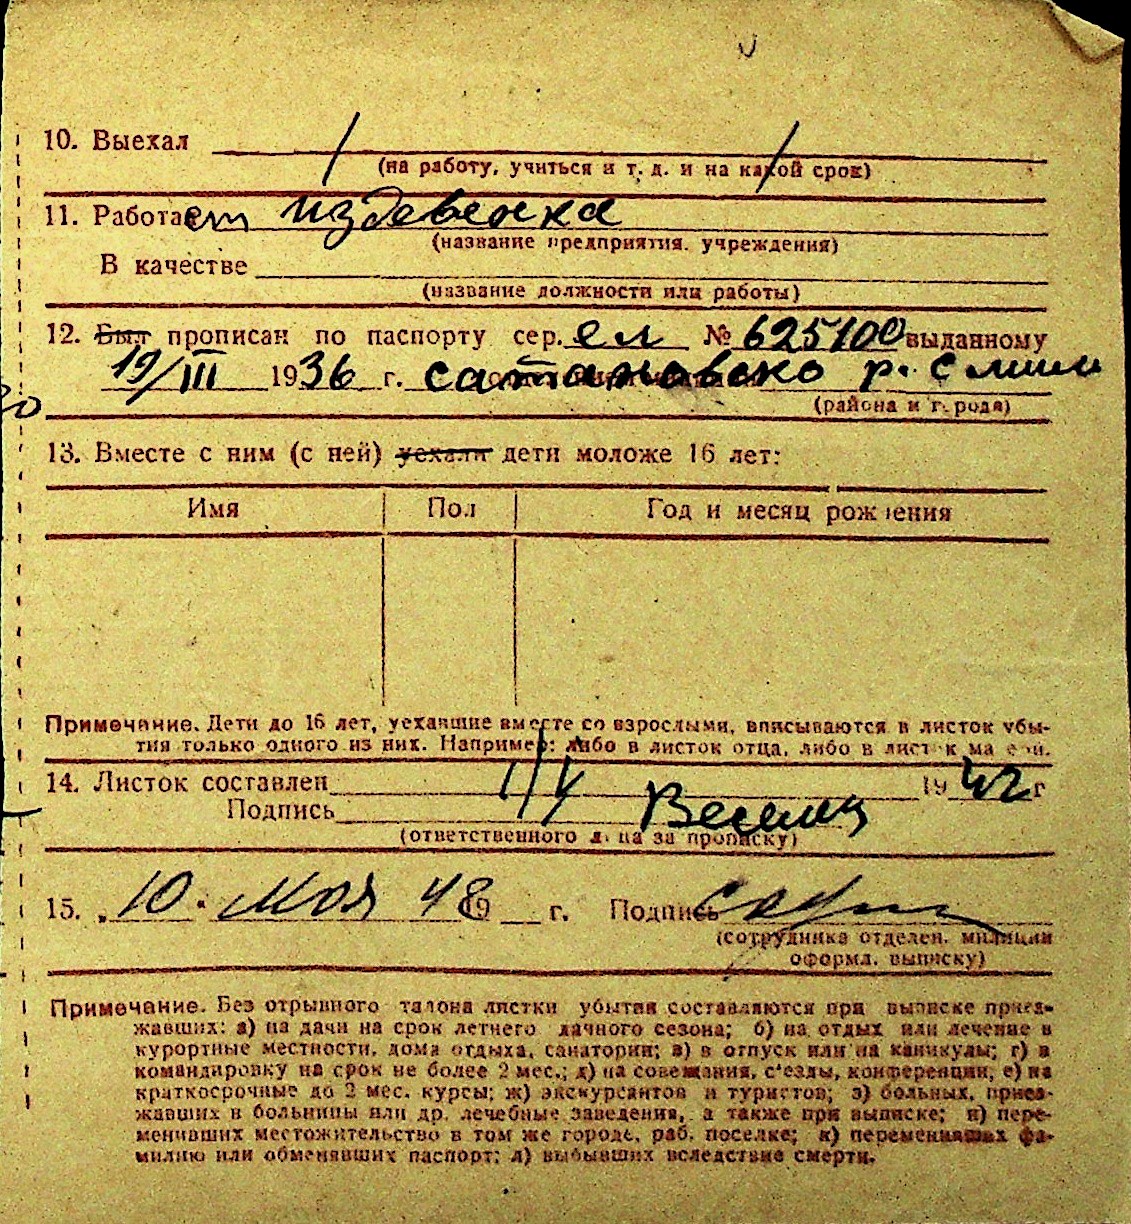 10. Выехал
(на работу, учиться и т. д. и на какой срок)
11. Работает издевенка
(название предприятия, учреждения)
В качестве
(название должности или работы)
12. Был прописан по паспорту сер. ел № 625100 выданному
19/III 1936 г. сатановско р.
(района и города)
13. Вместе с ним (с ней) уехали дети моложе 16 лет:
Имя Пол Год и месяц рождения
Примечание. Дети до 16 лет, уехавшие вместе со взрослыми, вписываются в листок убы-
тия только одного из них. Например: либо в листок отца, либо в листок матери.
14. Листок составлен 1/V 1942 г
Подпись
(ответственного лица за прописку)
15. „10. мая 4 г. Подпись
(сотрудника отделен. милиции
оформл. выписку)
Примечание. Без отрывного талона листки убытия составляются при выписке приез-
жавших: а) на дачи на срок летнего дачного сезона; б) на отдых или лечение в
курортные местности, дома отдыха, санатории; в) в отпуск или на каникулы; г) в
командировку на срок не более 2 мес.; д) на совещания, с'езды, конференции, е) на
краткосрочные до 2 мес. курсы; ж) экскурсантов и туристов; з) больных, приез-
жавших в больницы или др. лечебные заведения, а также при выписке; и) пере-
менивших местожительство в том же городе, раб. поселке; к) переменивших фа-
милию или обменявших паспорт; л) выбывших вследствие смерти.